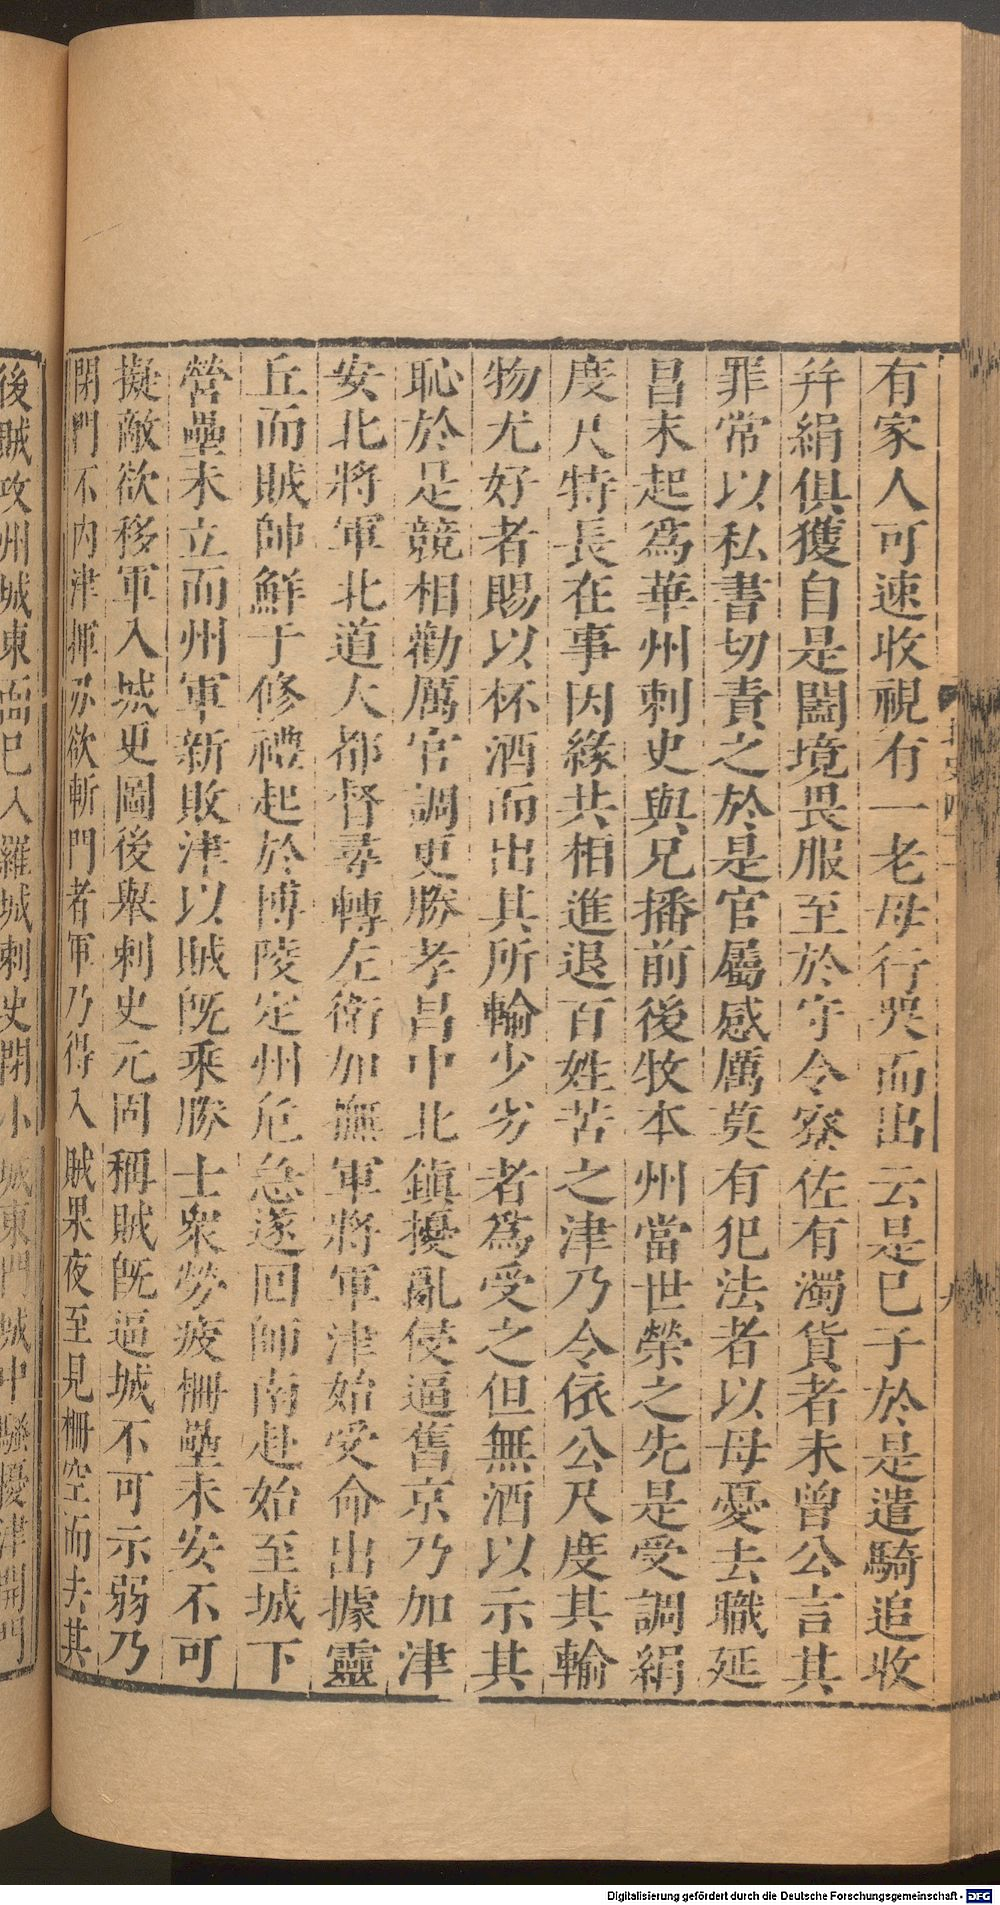 有家人可速收視有一老母行哭而出云是巳子於是遣騎追收
幷絹俱獲自是闔境畏服至於守令寮佐有濁貨者未曾公言其
罪常以私書切責之於是官屬感厲莫有犯法者以母憂去職延
昌末起爲華州刺史與兄播前後牧本州當世榮之先是受調絹
度尺特長在事因緣共相進退百姓苦之津乃令依公尺度其輸
物尤好者賜以杯酒而出其所輸少劣者爲受之但無酒以示其
恥於是競相勸厲官調更勝孝昌中北鎮擾亂侵逼舊京乃加津
安北將軍北道大都督尋轉左衛加撫軍將軍津始受命出據靈
丘而賊帥鮮于修禮起於博陵定州危急遂回師南赴始至城下
營壘未立而州軍新敗津以賊旣乘勝士衆勞疲柵壘未安不可
擬敵欲移軍入城更圖後舉刺史元固稱賊旣逼城不可示弱乃
閉門不內津揮刃欲斬門者軍乃得入賊果夜至見柵空而去其
後賊攻州城東面巳入羅城刺史閉小城東門城中騷擾津開門
Digitalisierung gefördert durch die Deutsche Forschungsgemeinschaft - DFG